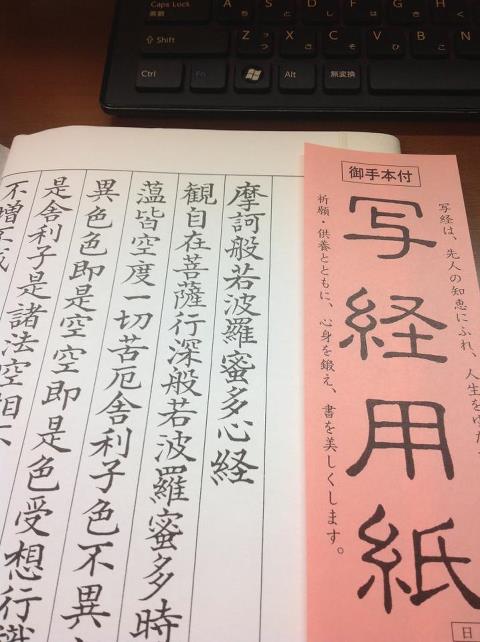 Caps Lock
英数
Shift
Z X C V B N
Ctrl Fn Alt 無変換
御手本付
写経用紙
写経は、先人の知恵にふれ、人生をゆた
祈願・供養とともに、心身を鍛え、書を美しくします。
日
摩訶般若波羅蜜多心経
観自在菩薩行深般若波羅蜜多時
薀皆空度一切苦厄舎利子色不異
異色色即是空空即是色受想行識
是舎利子是諸法空相不
不増不減